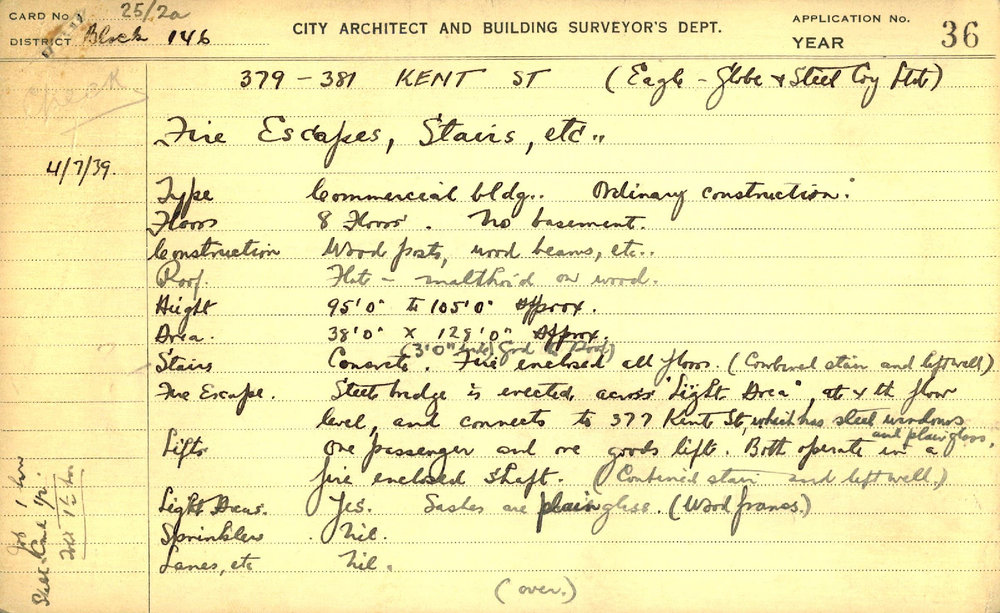 CARD No. 25/2a
CITY ARCHITECT AND BUILDING SURVEYOR'S DEPT.
APPLICATION No.
DISTRICT Block 146
YEAR
36
379 - 381 KENT ST (Eagle - Globe & Steel Coy Ltd)
Check
Fire Escapes, Stairs, etc..
4/7/39.
Type Commercial bldg.. Ordinary construction.
Floors 8 Floors. No basement.
Construction Wood posts, wood beams, etc..
Roof. Flat - malthoid on wood.
Height 95'0" to 105'0" Approx.
Area. 38'0" x 129'0" Approx.
(3'0" wide) Grd to Roof)
Stairs Concrete. Fire enclosed all floors. (Combined stair and lift well)
Fire Escape. Steel bridge is erected across "Light Area", at 4th floor
level, and connects to 377 Kent St, which has steel windows
and plain glass.
Lifts. One passenger and one goods lifts. Both operate in a
fire enclosed shaft. (Combined stair and lift well.)
Light Areas. Yes. Sashes are plain glass. (Wood frames.)
Sprinklers. Nil.
Lanes, etc Nil.
(over.)
Job 1 hr
1/2 hr.
Total 1 1/2 hrs